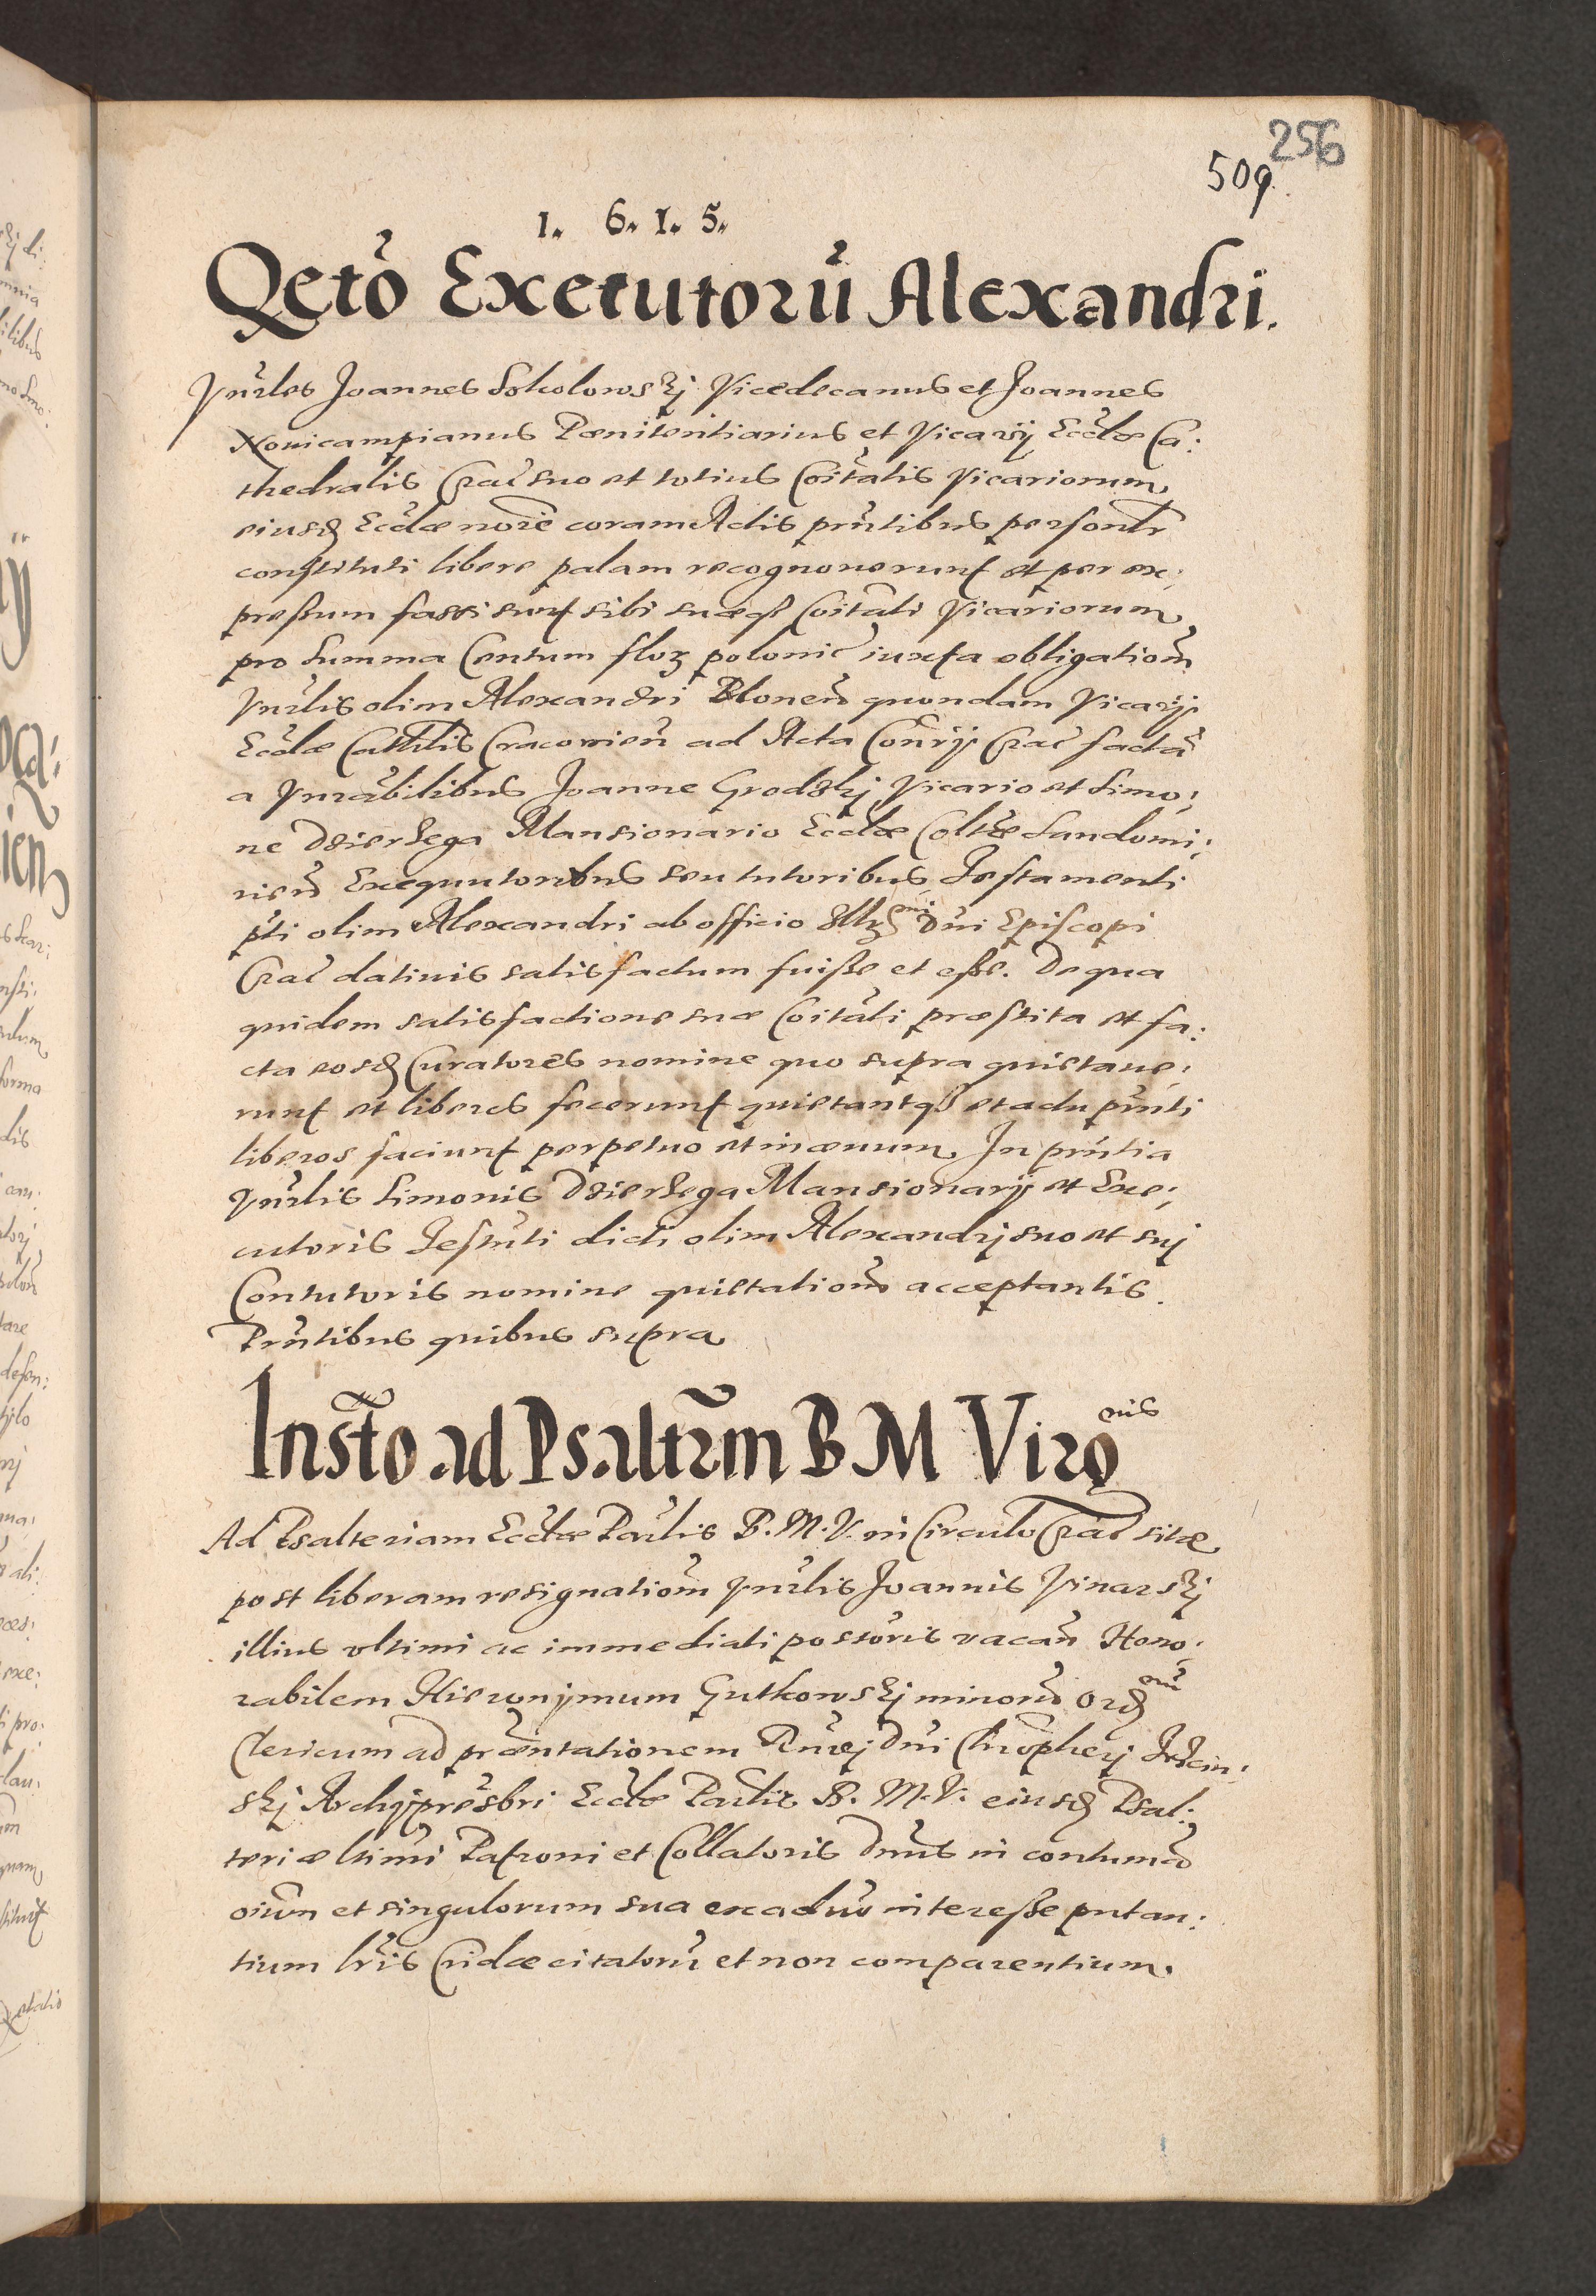 256
509.
1. 6. 1. 5.
Qetō Executorū Alexandri.
Vnrles Joannes Sokolowskj Vicedecanus et Joannes
Nouicampianus Pœnitentiarius et Vicarij Eccłæ Ca:
thedralis Crac suo et totius Coitatis Vicariorum
eiusd Eccłæ noie coram Actis pntibus personlr
constituti libere palam recognouerunt et per ex:
pressum fassi sunt sibi suæq Coitati Vicariorum
pro summa Centum flor polonic iuxta obligationē
Vnrlis olim Alexandri Blonen quondam Vicarij
Eccłæ Cathlis Cracouien ad Acta Consrij Crac factā
a Vnrabilibus Joanne Grodskj Vicario et Simo:
ne Dzierzega Mansionario Eccłæ Coltæ Sandomi:
rien Exequutoribus seu tutoribus Testamenti
pti olim Alexandri ab officio Illr mi Dni Episcopi
Crac datiuis satisfactum fuisse et esse. De qua
quidem satisfactione suæ Coitati præstita et fa:
cta eosd Curatores nomine quo supra quietaue:
runt et liberos fecerunt quietantq et actu pnti
liberos faciunt perpetuo et in æuum. In pntia
Vnrlis Simonis Dzierzega Mansionarij et Exe:
cutoris Testnti dicti olim Alexandrj suo et suj
Contutoris nomine quietationē acceptantis.
Pntibus quibus supra
Insto ad Psaltrm B M Virg nis
Ad Psalteriam Eccłæ Parlis B. M. V. in Circulo Crac sitæ
post liberam resignationē Vnrlis Joannis Vinarskj
illius vltimi ac immediati possoris vacan Hono:
rabilem Hieronymum Gutkowskj minorū Ord nū
Clericum ad præntationem Rndj Dni Chrophorj
skj Archipresbri Eccłæ Parlis B. M. V. eiusd Psal:
teriæ ltimi Patroni et Collatoris Dnus in contumā
oium et singulorum sua exaduo interesse putan:
tium lris Cridæ citatorū et non comparentium.